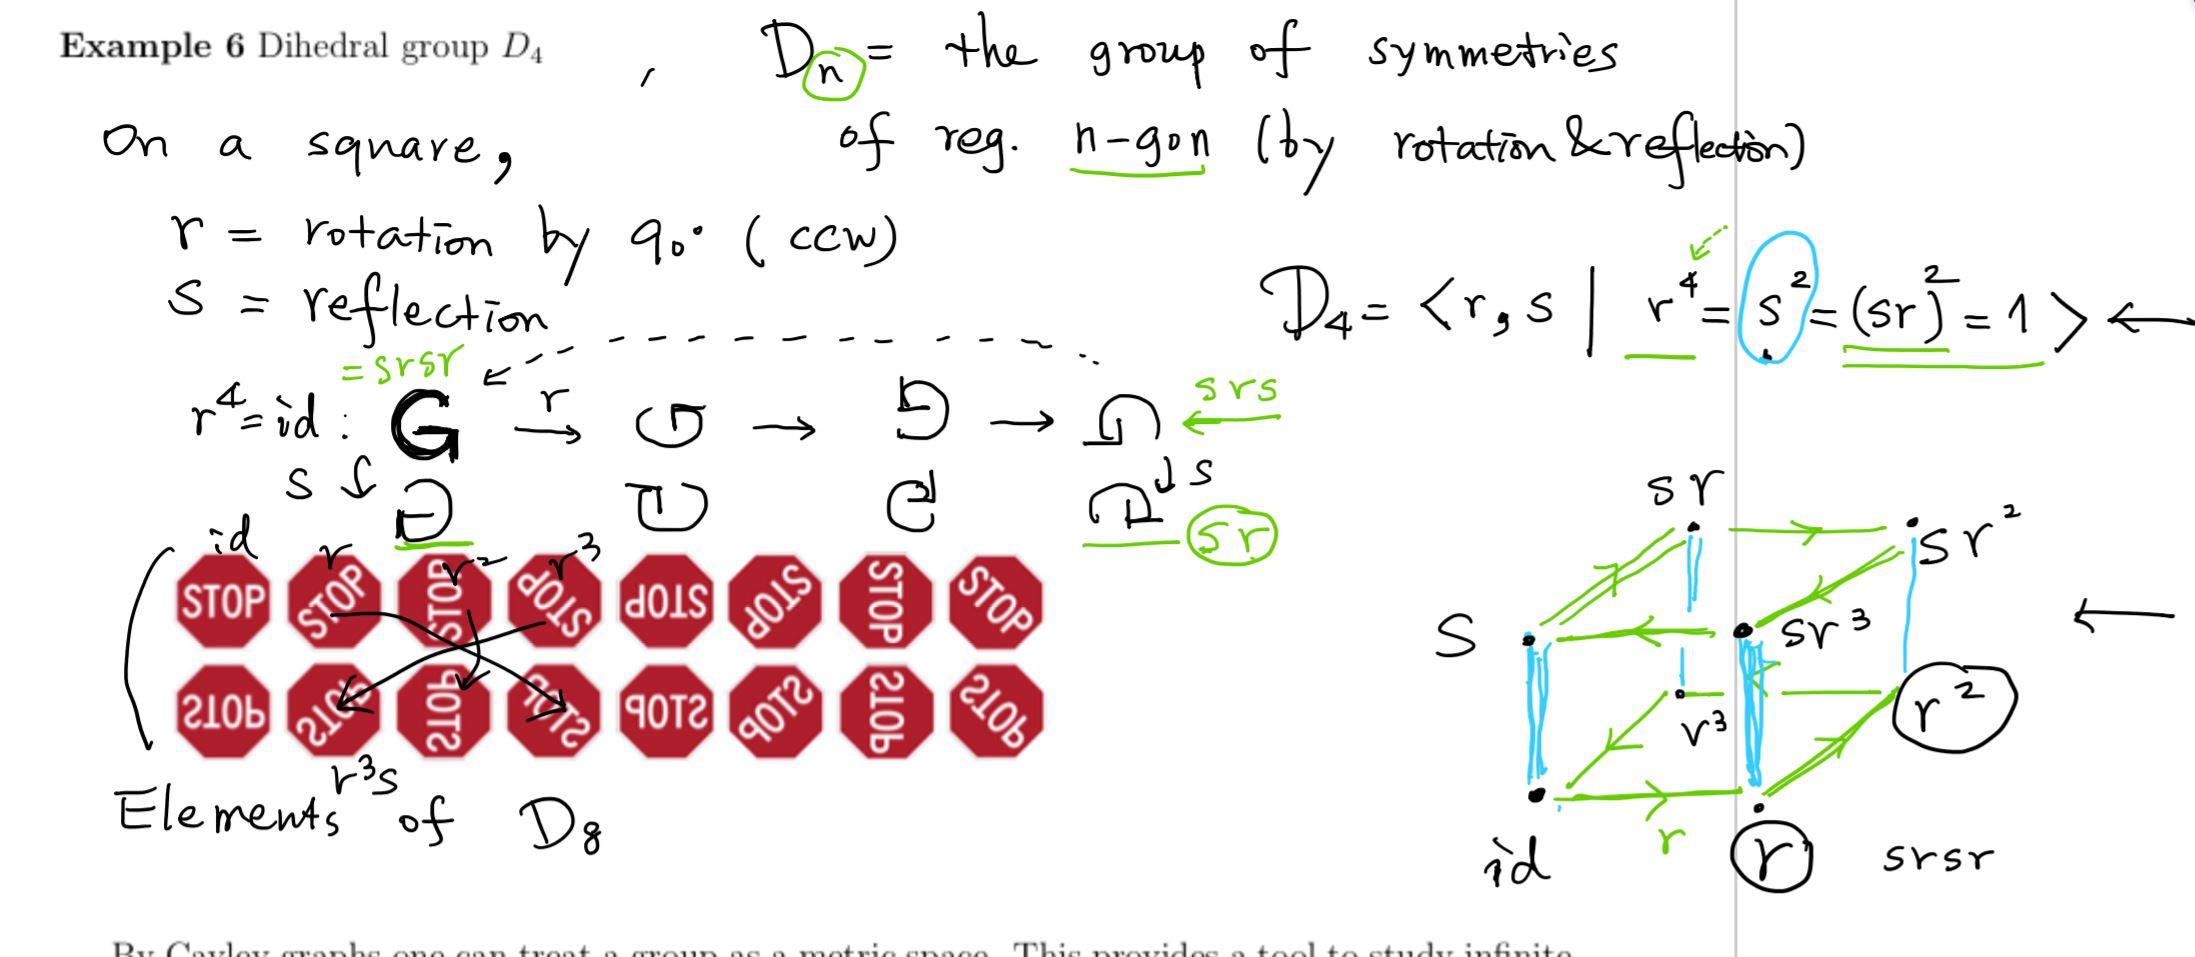 Example 6 Dihedral group D₄
Dₙ = the group of symmetries
of reg. n-gon (by rotation & reflection)
On a square,
r = rotation by 90° (ccw)
s = reflection
D₄ = <r, s | r⁴ = s² = (sr)² = 1> ←
= srsr
r⁴ = id : G → r G → G → G ← srs
s ↓ G G G G ↓ s
sr
id r r² r³
STOP STOP STOP STOP STOP STOP STOP STOP
STOP STOP STOP STOP STOP STOP STOP STOP
r³s
Elements of D₈
sr sr²
s sr³ ←
r³ r²
id r r srsr
By Cayley graphs one can treat a group as a metric space. This provides a tool to study infinite